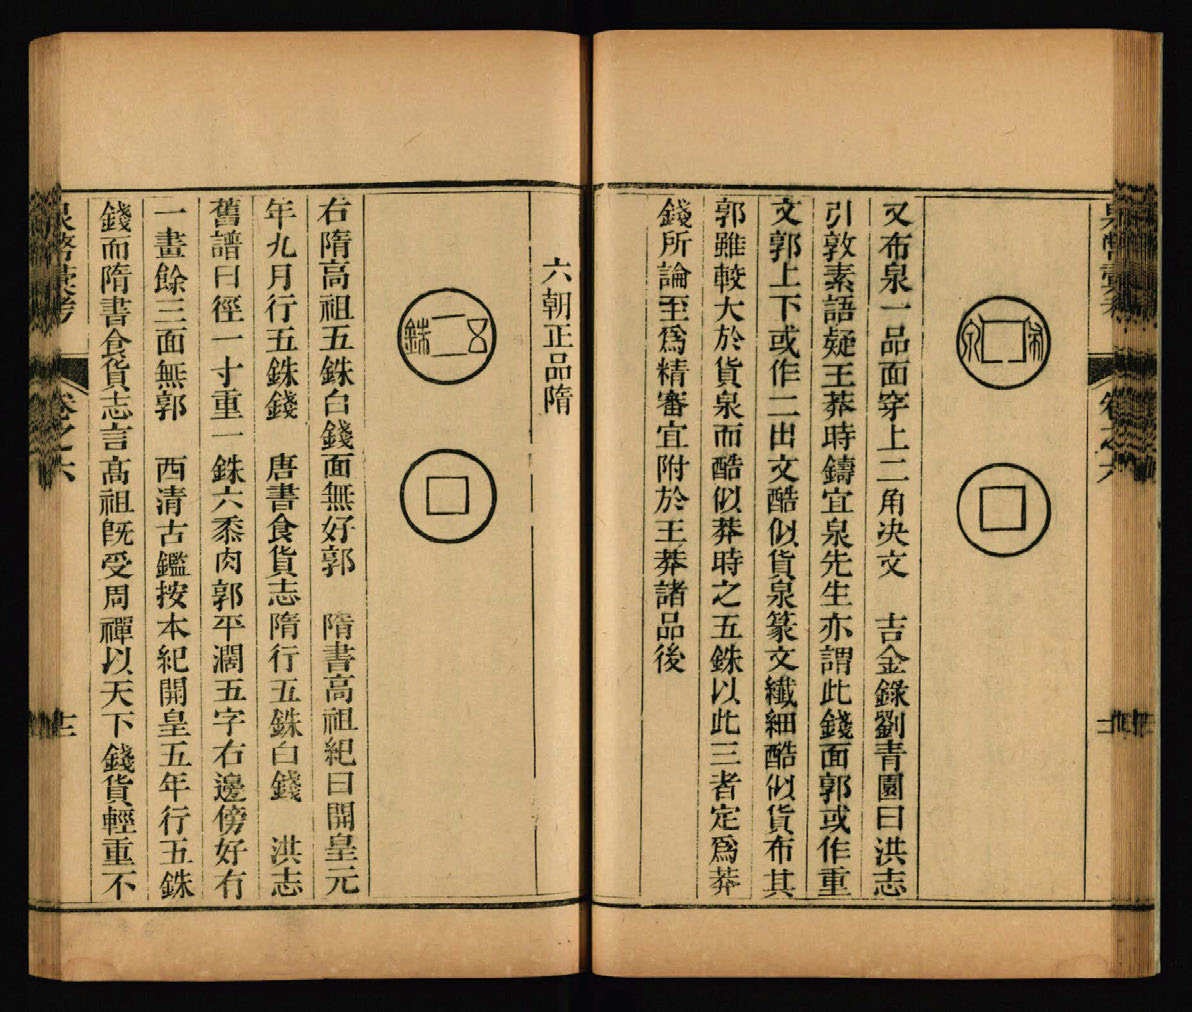 布泉
又布泉一品面穿上二角决文　吉金錄劉青園曰洪志
引敦素語疑王莽時鑄宜泉先生亦謂此錢面郭或作重
文郭上下或作二出文酷似貨泉篆文纖細酷似貨布其
郭雖較大於貨泉而酷似莽時之五銖以此三者定爲莽
錢所論至爲精審宜附於王莽諸品後
六朝正品隋
五銖
右隋高祖五銖白錢面無好郭　隋書高祖紀曰開皇元
年九月行五銖錢　唐書食貨志隋行五銖白錢　洪志
舊譜曰徑一寸重一銖六黍肉郭平濶五字右邊傍好有
一畫餘三面無郭　西清古鑑按本紀開皇五年行五銖
錢而隋書食貨志言髙祖旣受周禪以天下錢貨輕重不
卷之六